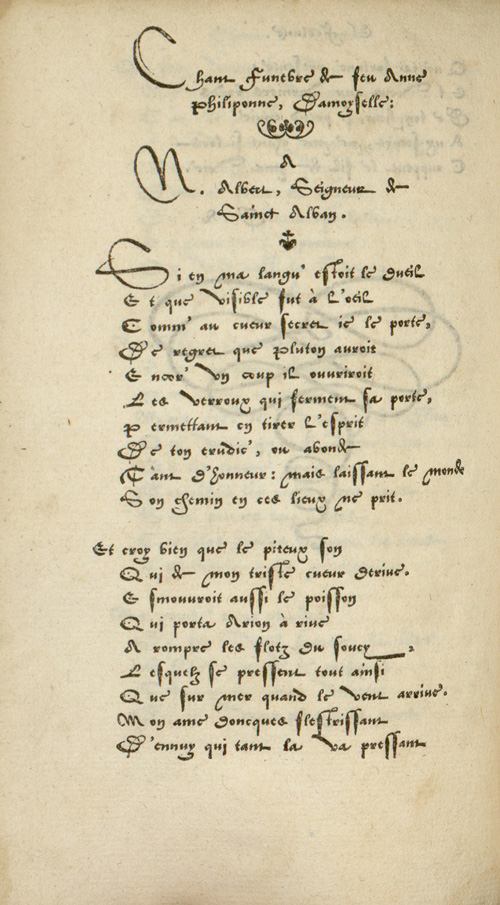 Chant funebre de feu Anne
Philiponne, Damoyselle:
A
M. Albert, Seigneur de
Sainct Alban.
Si en ma langu' estoit le dueil
Et que visible fut à l'oeil
Comm' au cueur secret ie le porte,
De regret que Pluton auroit
Encor' vn coup il ouuriroit
Les verroux qui ferment sa porte,
Permettant en tirer l'esprit
De ton erudic', ou abonde
Tant d'honneur: mais laissant le monde
Son chemin en ces lieux ne prit.
Et croy bien que le piteux son
Qui de mon triste cueur deriue.
Esmouuroit aussi le poisson
Qui porta Arion à riue
A rompre les flotz du soucy,
Lesquelz se pressent tout ainsi
Que sur mer quand le vent arriue.
Mon ame doncques flestrissant
D'ennuy qui tant la va pressant